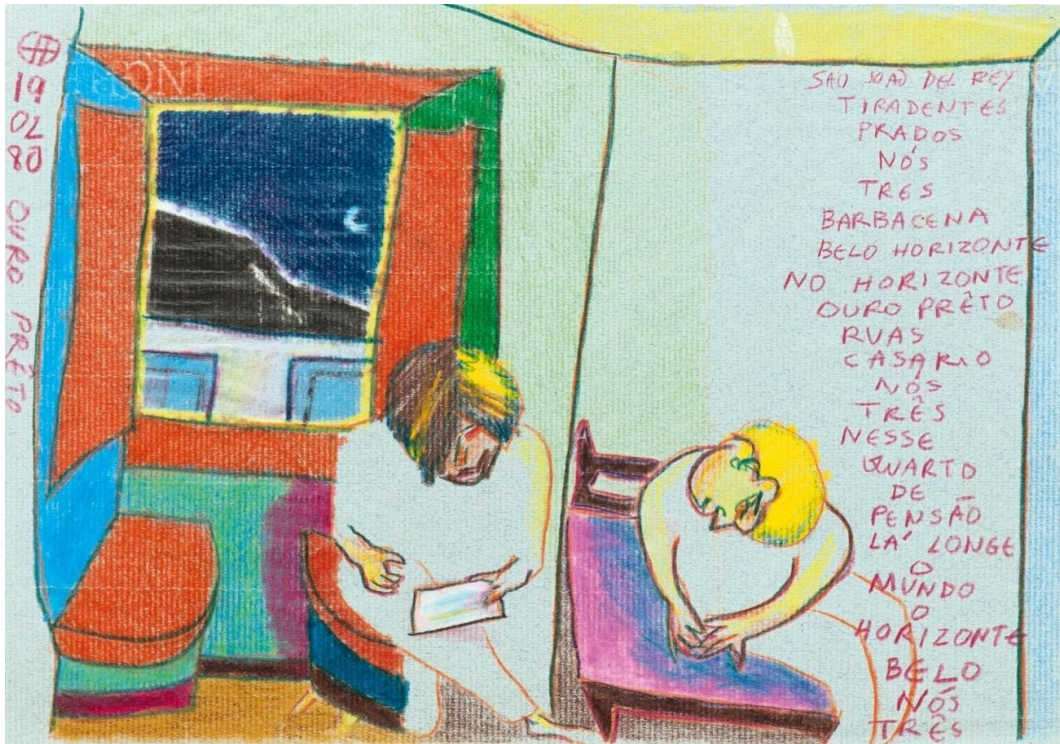 19
02
80
OURO PRÊTO
SAO JOAO DEL REY
TIRADENTES
PRADOS
NÓS
TRES
BARBACENA
BELO HORIZONTE
NO HORIZONTE
OURO PRÊTO
RUAS
CASARIO
NÓS
TRÊS
NESSE
QUARTO
DE
PENSÃO
LA' LONGE
O
MUNDO
O
HORIZONTE
BELO
NÓS
TRÊS